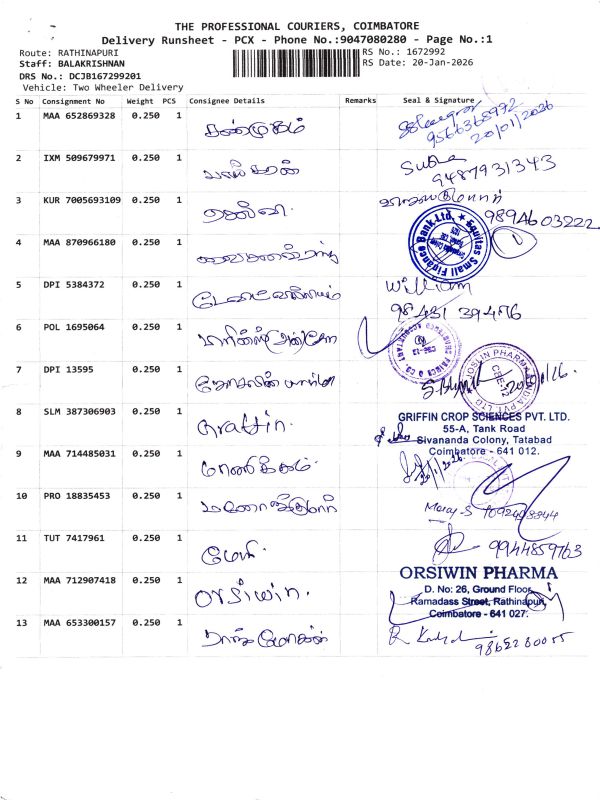 THE PROFESSIONAL COURIERS, COIMBATORE
Delivery Runsheet - PCX - Phone No.:9047080280 - Page No.:1
Route: RATHINAPURI
RS No.: 1672992
Staff: BALAKRISHNAN
RS Date: 20-Jan-2026
DRS No.: DCJB167299201
Vehicle: Two Wheeler Delivery
S No Consignment No Weight PCS Consignee Details Remarks Seal & Signature
1 MAA 652869328 0.250 1 சண்முகம்
9566368932
20/01/2026
2 IXM 509679971 0.250 1 Subha
9487931343
3 KUR 7005693109 0.250 1 செல்வி
9894603222
4 MAA 870966180 0.250 1
Equitas Small Finance Bank Ltd.
5 DPI 5384372 0.250 1 William
98431 39476
6 POL 1695064 0.250 1
7 DPI 13595 0.250 1
JOSWIN PHARMA INDIA PVT LTD
8 SLM 387306903 0.250 1 Graffin.
GRIFFIN CROP SCIENCES PVT. LTD.
55-A, Tank Road
Sivananda Colony, Tatabad
Coimbatore - 641 012.
9 MAA 714485031 0.250 1 மாணிக்கம்
10 PRO 18835453 0.250 1 மனோஜ்குமார்
11 TUT 7417961 0.250 1 மேரி.
9944859763
12 MAA 712907418 0.250 1 orsiwin.
ORSIWIN PHARMA
D. No: 26, Ground Floor,
Ramadass Street, Rathinapuri,
Coimbatore - 641 027.
13 MAA 653300157 0.250 1 ராஜ மோகன்